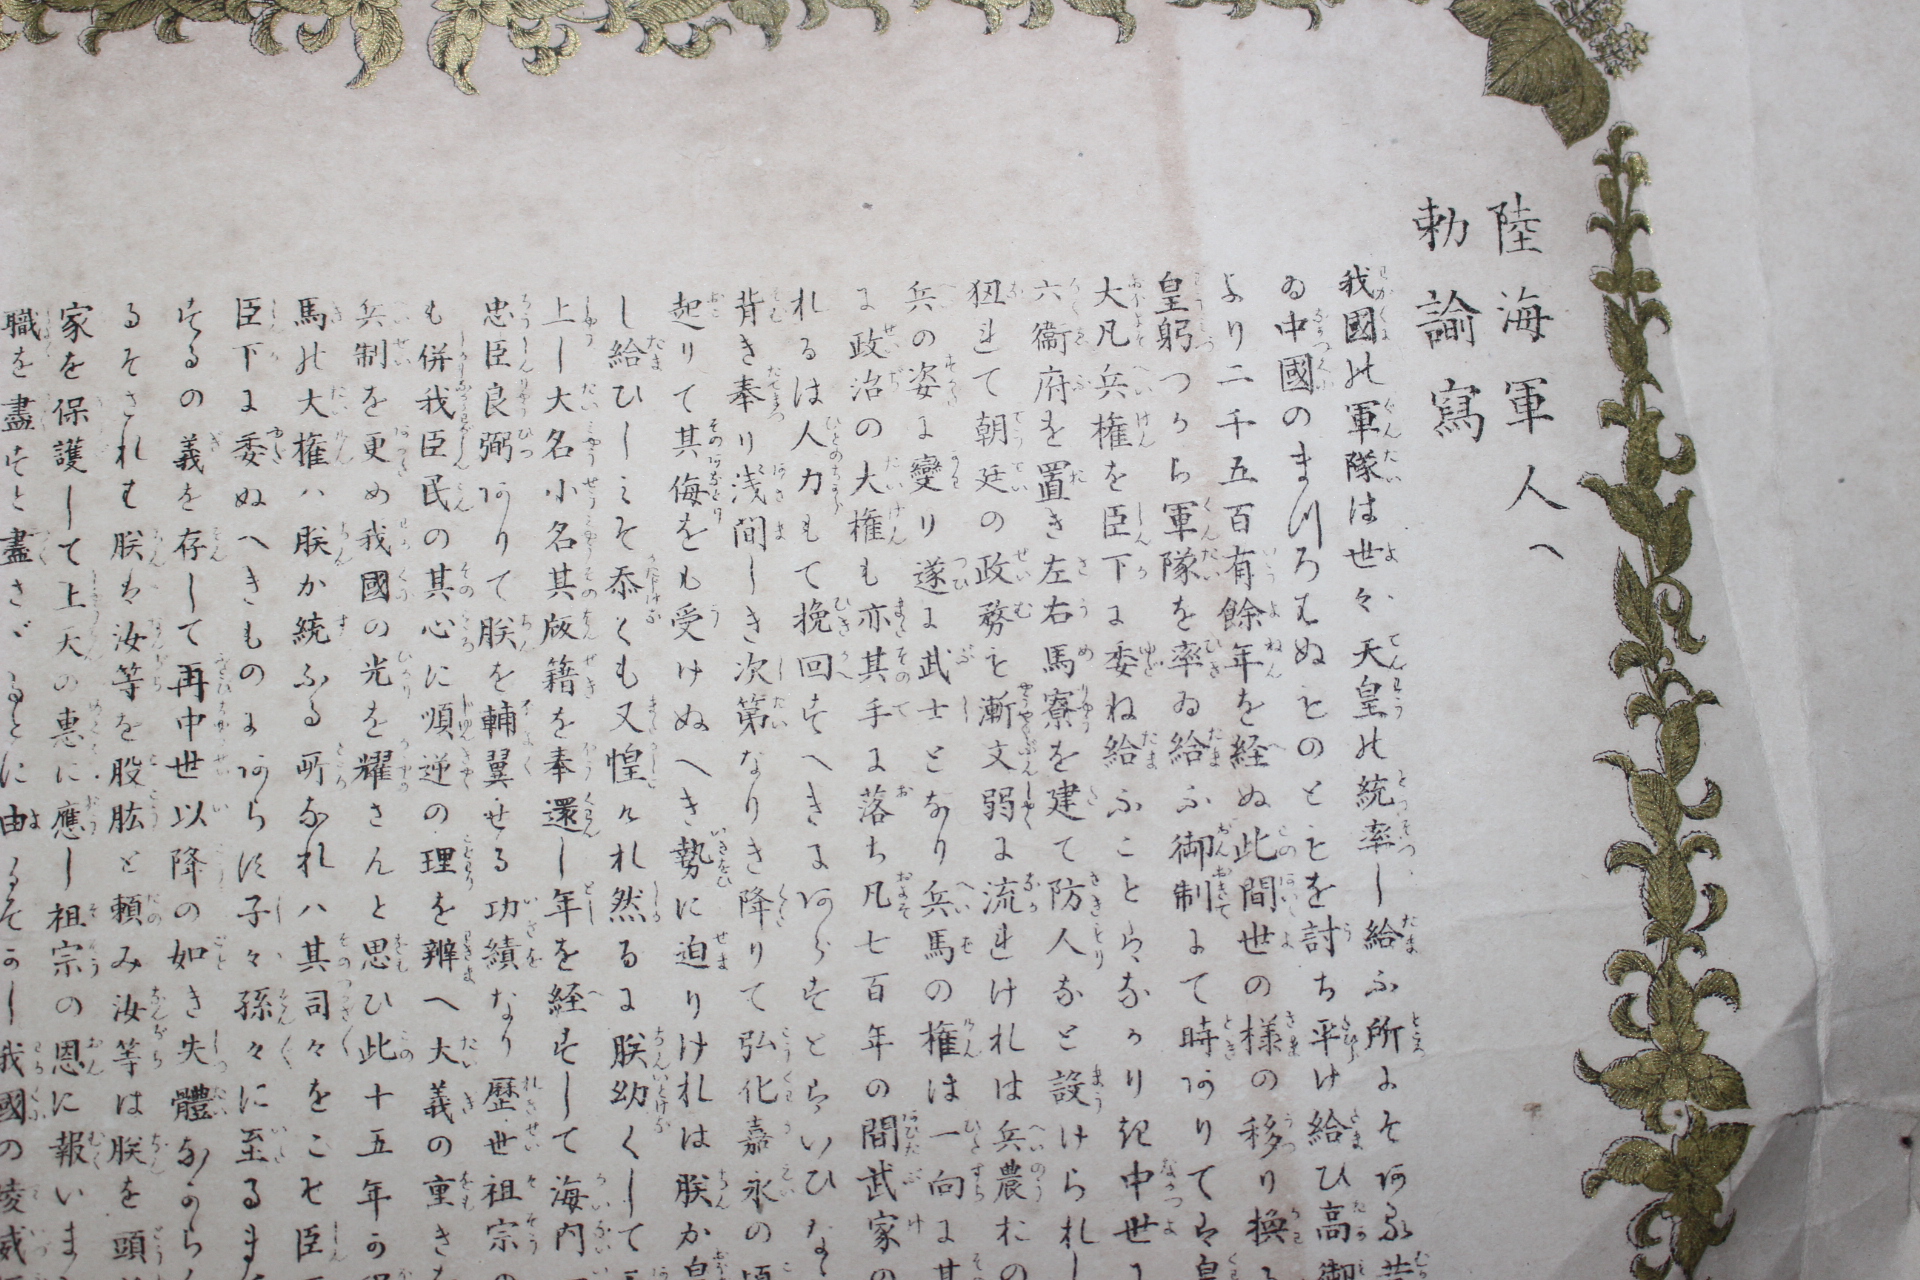 陸海軍人へ
勅諭寫
我國の軍隊は世々天皇の統率し給ふ所にそある昔
ゐ中國のまつろはぬものともを討ち平け給ひ高御
より二千五百有餘年を経ぬ此間世の様の移り換る
皇躬つから軍隊を率ゐ給ふ御制にて時ありては皇
大凡兵権を臣下に委ね給ふことはなかりき中世に
六衞府を置き左右馬寮を建て防人なと設けられし
狃れて朝廷の政務も漸文弱に流れけれは兵農おの
兵の姿に變り遂に武士となり兵馬の権は一向に其
に政治の大権も亦其手に落ち凡七百年の間武家の
れるは人力もて挽回すへきにあらすとはいひな
背き奉り浅間しき次第なりき降りて弘化嘉永の頃
起りて其侮をも受けぬへき勢に迫りけれは朕か皇
し給ひしこそ忝くも又惶けれ然るに朕幼くして
上し大名小名其版籍を奉還し年を経すして海内
忠臣良弼ありて朕を輔翼せる功績なり歴世祖宗の
も併我臣民の其心に順逆の理を辨へ大義の重き
兵制を更め我國の光を耀さんと思ひ此十五年か
馬の大権ハ朕か統ふる所なれハ其司々をこそ臣
臣下に委ぬへきものにあらす子々孫々に至るまて
するの義を存して再中世以降の如き失體なからん
るそされは朕は汝等を股肱と頼み汝等は朕を頭
家を保護して上天の惠に應し祖宗の恩に報いま
職を盡すと盡さゝるとに由るそかし我國の稜威